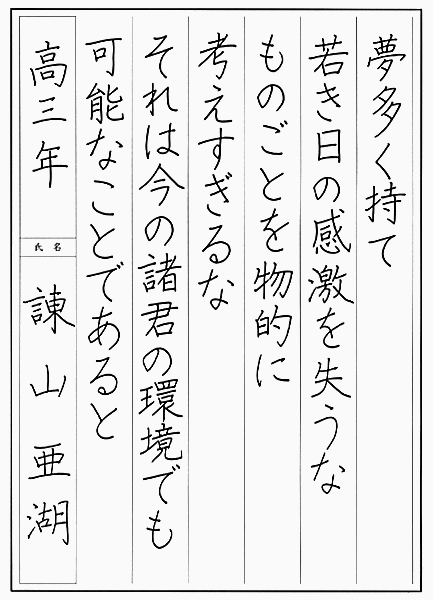 夢多く持て
若き日の感激を失うな
ものごとを物的に
考えすぎるな
それは今の諸君の環境でも
可能なことであると
高三年
氏名
諌山亜湖